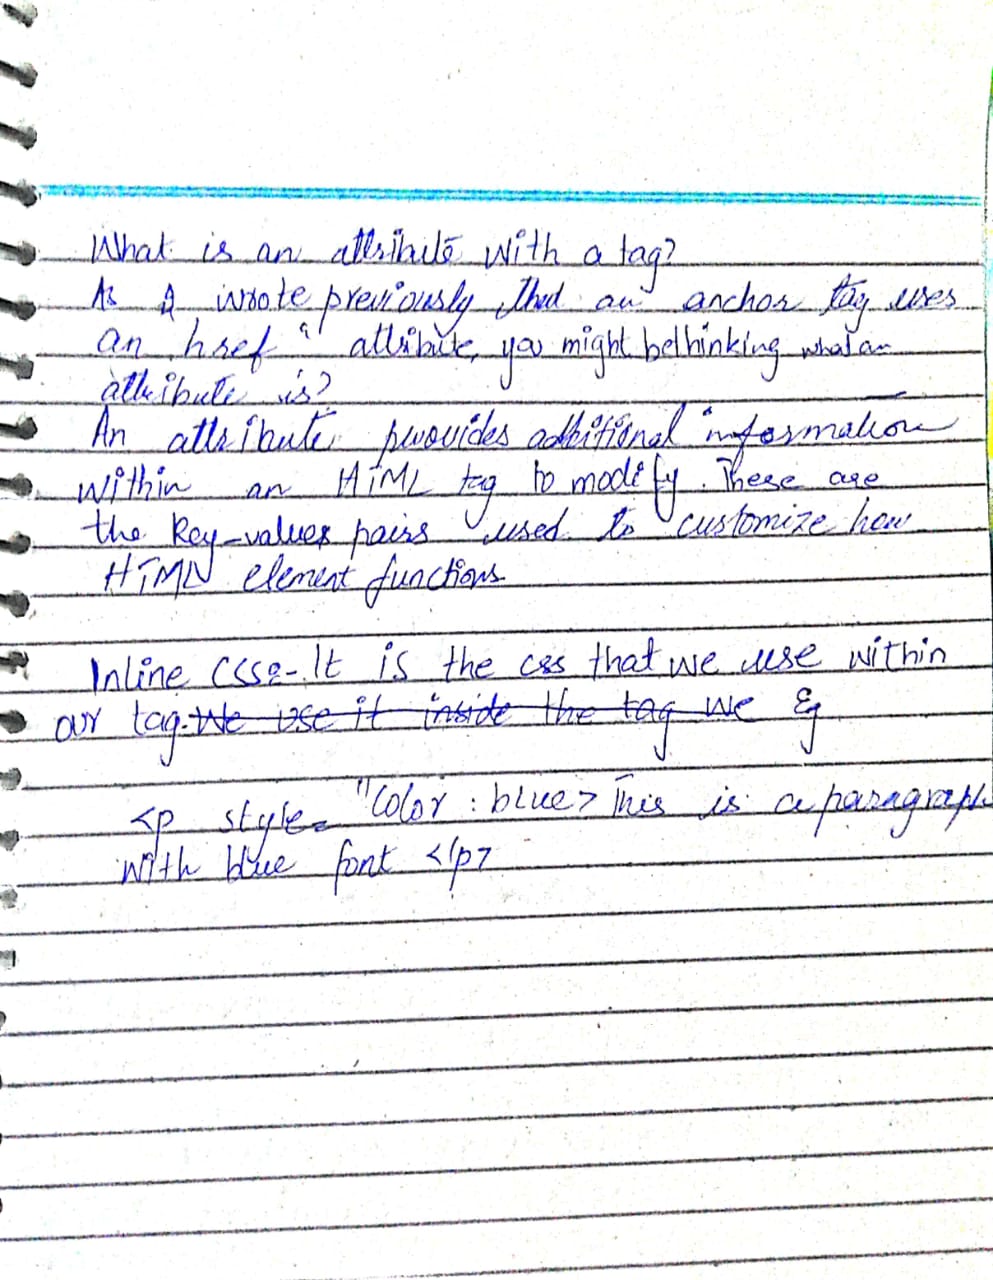 What is an attribute with a tag?
As I wrote previously that an anchor tag uses
an href " attribute, you might be thinking what an
attribute is?
An attribute provides additional information
within an HTML tag to modify. These are
the Key-values pairs used to customize how
HTML element functions
Inline CSS:- It is the css that we use within
our tag. We use it inside the tag we Eg
<p style= "Color : blue> This is a paragraph
with blue font </p>